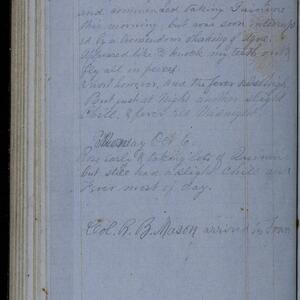 and commenced taking Quinine
this morning but was soon interrup
ed by a tremendous shaking of Ague.
Appeared like to knock my teeth out &
fly all in pieces
went however, and the fever
But just at Night another slight
Chill, & fever till Midnight
Oct 6.
Rose early & taking lots of Quinine
but still had a slight Chill and
Fever most of day.
Col. R. B. Mason arrived in town